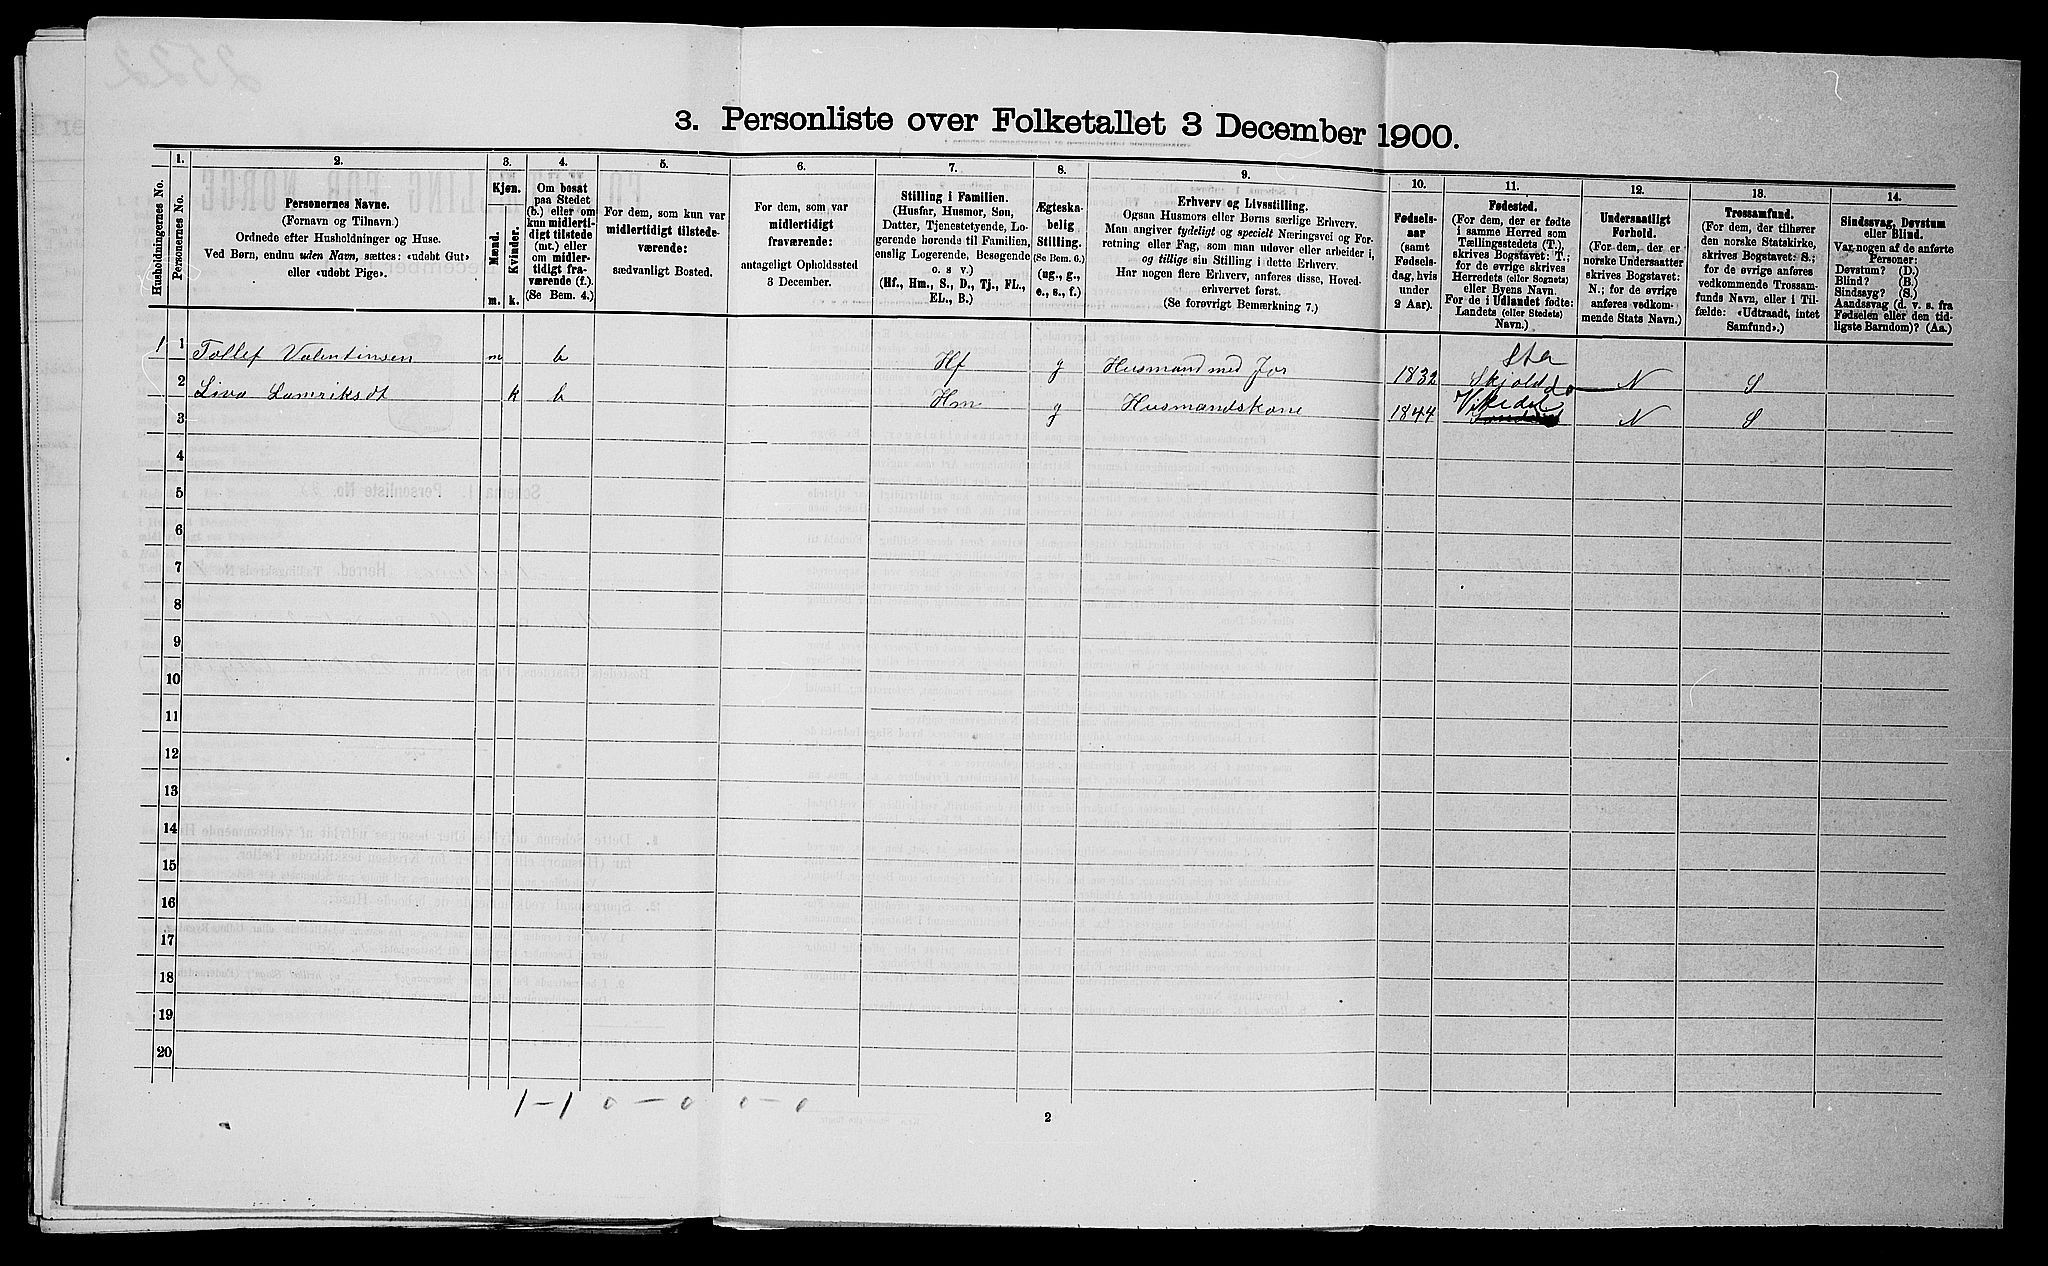 3. Personliste over Folketallet 3 December 1900.
Husholdningernes No.
1.
Personernes No.
2.
Personernes Navne.
(Fornavn og Tilnavn.)
Ordnede efter Husholdninger og Huse.
Ved Børn, endnu uden Navn, sættes: «udøbt Gut»
eller «udøbt Pige».
3.
Kjøn.
Mænd.
Kvinder.
m.
k.
4.
Om bosat
paa Stedet
(b.) eller om
kun midlerti-
digt tilstede
(mt.) eller
om midler-
tidigt fra-
værende (f.).
(Se Bem. 4.)
5.
For dem, som kun var
midlertidigt tilstede-
værende:
sædvanligt Bosted.
6.
For dem, som var
midlertidigt
fraværende:
antageligt Opholdssted
3 December.
7.
Stilling i Familien.
(Husfar, Husmor, Søn,
Datter, Tjenestetyende, Lo-
gerende hørende til Familien,
enslig Logerende, Besøgende
o. s v.)
(Hf., Hm., S., D., Tj., FL.,
EL., B.)
8.
Ægteska-
belig
Stilling.
(Se Bem. 6.)
(ug., g.,
e., s., f.)
9.
Erhverv og Livsstilling.
Ogsaa Husmors eller Børns særlige Erhverv.
Man angiver tydeligt og specielt Næringsvei og For-
retning eller Fag, som man udøver eller arbeider i,
og tillige sin Stilling i dette Erhverv.
Har nogen flere Erhverv, anføres disse, Hoved-
erhvervet først.
(Se forøvrigt Bemærkning 7.)
10.
Fødsels-
aar
(samt
Fødsels-
dag, hvis
under
2 Aar).
11.
Fødested.
(For dem, der er fødte
i samme Herred som
Tællingsstedets (T.),
skrives Bogstavet: T.;
for de øvrige skrives
Herredets (eller Sognets)
eller Byens Navn.
For de i Udlandet fødte:
Landets (eller Stedets)
Navn.)
12.
Undersaatligt
Forhold.
(For dem, der er
norske Undersaatter
skrives Bogstavet:
N.; for de øvrige
anføres vedkom-
mende Stats Navn.)
13.
Trossamfund.
(For dem, der tilhører
den norske Statskirke,
skrives Bogstavet: S.;
for de øvrige anføres
vedkommende Trossam-
funds Navn, eller i Til-
fælde: «Udtraadt, intet
Samfund».)
14.
Sindssvag, Døvstum
eller Blind.
Var nogen af de anførte
Personer:
Døvstum? (D.)
Blind? (B.)
Sindssyg? (S.)
Aandssvag (d. v. s. fra
Fødselen eller den tid-
ligste Barndom)? (Aa.)
1 1 Tollef Valentinsen m b Hf g Husmand med Jor 1832 Skjold N S
2 Liva Lamriksdt k b Hm g Husmandskone 1844 Vikedal N S
3
4
5
6
7
8
9
10
11
12
13
14
15
16
17
18
19
20
1 - 1 0 - 0 0 - 0
2